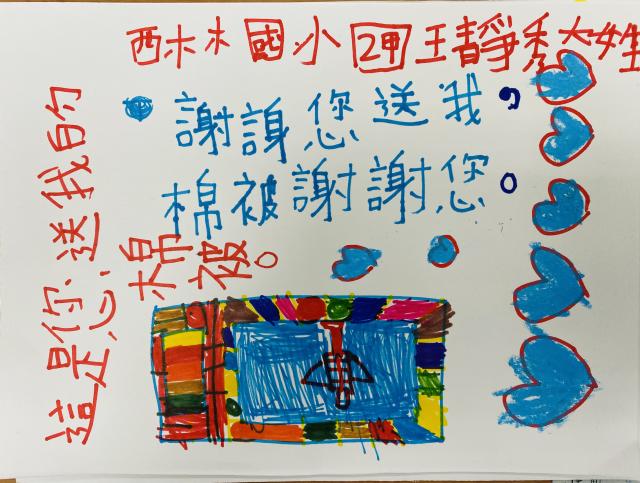 西林國小2甲王靜秀大姓
謝謝您送我，
棉被謝謝您。
這是您送我的
棉被。